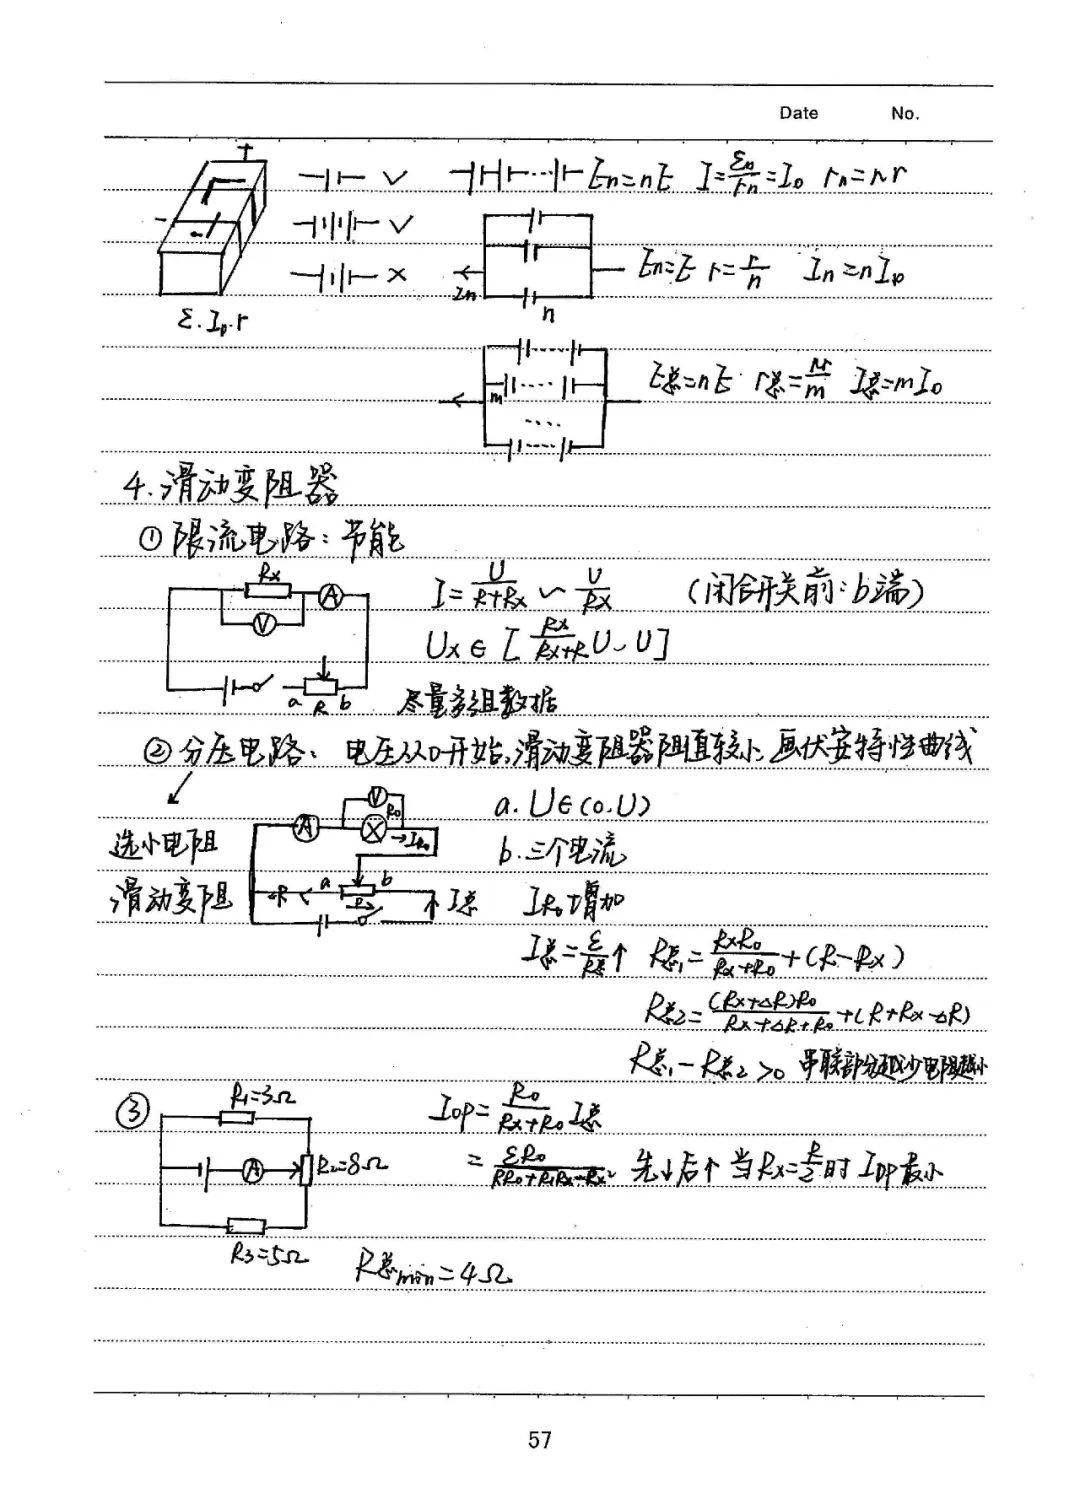 Date No.
+
✓ En=nE I=εn/rn=I₀ rn=nr
- ✓
× En=E r=r/n In=nI₀
In n
ε.I₀.r
E总=nE r总=nr/m I总=mI₀
m
4.滑动变阻器
①限流电路：节能
Rx A V a R b
I=U/(R+Rx) ~ U/Rx (闭合开关前:b端)
Ux∈[Rx/(Rx+R)U、U]
尽量多组数据
②分压电路：电压从0开始,滑动变阻器阻值较小、画伏安特性曲线
选小电阻
滑动变阻
V R₀ A →IR₀ a b I总
a. U∈(0.U)
b.三个电流
IR₀增加
I总=ε/R总↑ R总₁=RxR₀/(Rx+R₀)+(R-Rx)
R总2=(Rx+ΔR)R₀/(Rx+ΔR+R₀)+(R+Rx-ΔR)
R总₁-R总₂>0 串联部分越少电阻越小
③ R₁=3Ω A R₂=8Ω R₃=5Ω
IOP=R₀/(Rx+R₀)I总
=εR₀/(RR₀+RRx-Rx²) 先↓后↑当Rx=R/2时IOP最小
R总min=4Ω
57